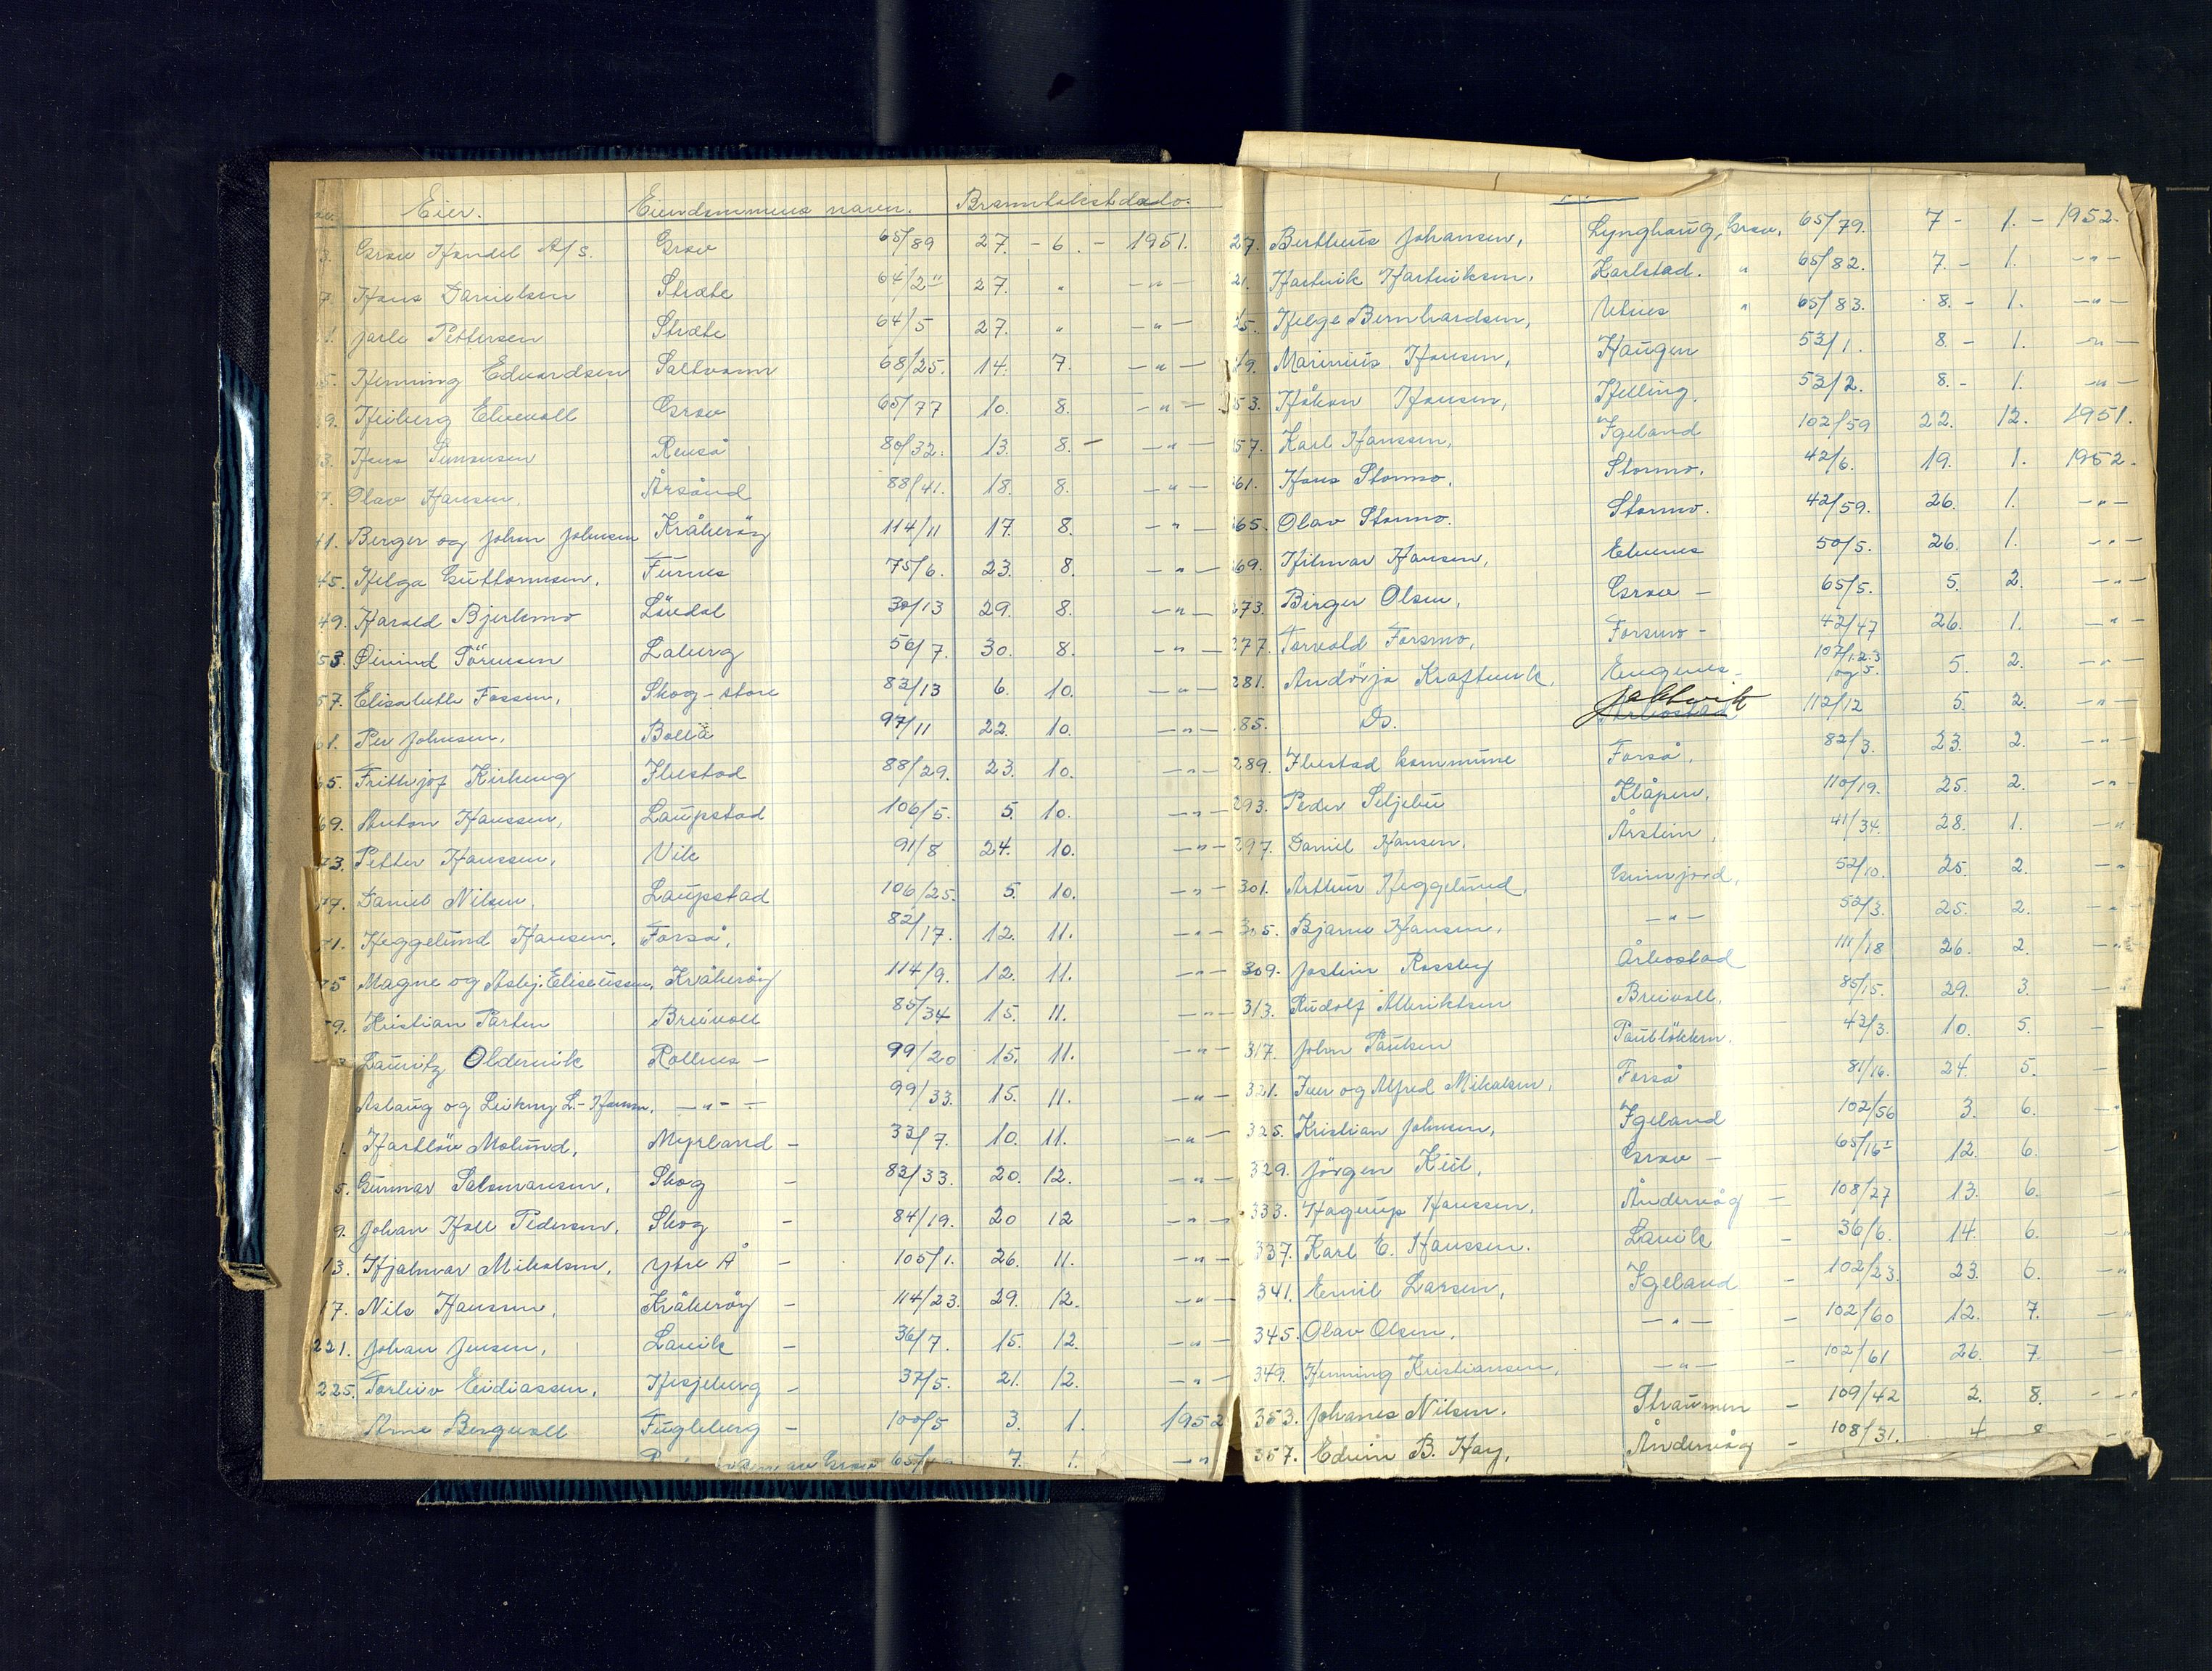 Eier. Eiendommens navn. Branntakstdato.
3. Grov Handel A/S. Grov 65/89 27. - 6. - 1951.
7. Hans Danielsen Stræte 64/2" 27. " -"-
1. Jarle Pettersen Stræte 64/5 27. " -"-
5. Henning Edvardsen Saltvann 68/25. 14. 7. -"-
9. Heiberg Elvevoll Grov 65/77 10. 8. -"-
3. Hans Simonsen Renså 80/32. 13. 8. - -"-
7. Olav Hansen, Årsand 88/41. 18. 8. -"-
41. Berger og Johan Johnsen Kråkerøy 114/11 17. 8. -"-
45. Helga Guttormsen, Furnes 75/6. 23. 8. -"-
49. Harald Bjerkmo Løvdal 30/13 29. 8. -"-
53. Øivind Sörensen Laberg 56/7. 30. 8. -"-
57. Elisabeth Fossen, Skog-store 83/13 6. 10. -"-
61. Per Johnsen, Bollä 97/11 22. 10. -"-
65. Frithjof Kirkeng Ibestad 88/29. 23. 10. -"-
69. Anton Hanssen, Laupstad 106/5. 5. 10. -"-
73. Petter Hanssen, Vik 91/8 24. 10. -"-
77. Daniel Nilsen, Laupstad 106/25. 5. 10. -"-
71. Heggelund Hansen, Forså, 82/17. 12. 11. -"-
75 Magne og Asbj. Eliseussen, Kråkerøy 114/9. 12. 11. -"-
79. Kristian Parten Breivoll 85/34 15. 11. -"-
3 Lauritz Oldervik Rollnes - 99/20 15. 11. -"-
Aslaug og Leikny L.-Hansen, -"- - 99/33. 15. 11. -"-
1. Hartløv Molund, Myrland - 33/7. 10. 11. -"-
5. Gunnar Salomonsen, Skog - 83/33. 20. 12. -"-
9. Johan Hall Pedersen, Skog - 84/19. 20 12 -"-
13. Hjalmar Mikalsen, Ytre Å - 105/1. 26. 11. -"-
17. Nils Hanssen, Kråkerøy - 114/23. 29. 12. -"-
221. Johan Jensen, Lavik - 36/7. 15. 12. -"-
225. Torleiv Eidiassen, Hesjeberg - 37/5. 21. 12. -"-
Arne Bergvoll Fugleberg - 100/5 3. 1. 1952
Grov 65/ 7. 1. -"-
27. Bertheus Johansen, Lynghaug, Grov, 65/79. 7 - 1. - 1952.
21. Hartvik Hartviksen, Karlstad. " 65/82. 7. - 1. -"-
25. Helge Bernhardsen, Utnes " 65/83. 8. - 1. -"-
49. Marinius Hansen, Haugen 53/1. 8. - 1. -"-
53. Håkon Hansen, Helling. 53/2. 8. - 1. -"-
57. Karl Hanssen, Igeland 102/59 22. 12. 1951.
261. Hans Stormo, Stormo. 42/6. 19. 1. 1952.
265. Olav Stormo. Stormo. 42/59. 26. 1. -"-
269. Hilmar Hansen, Elvenes 50/5. 26. 1. -"-
273. Birger Olsen, Grov - 65/5. 5. 2. -"-
277. Torvald Forsmo, Forsmo - 42/47 26. 1. -"-
281. Andørja Kraftverk, Engenes - 107/1.2.3 og 5. 5. 2. -"-
285. Do. Årbostad Jektvik 112/12 5. 2. -"-
289. Ibestad kommune Forså, 82/3. 23. 2. -"-
293. Peder Seljebu Klåpen, 110/19. 25. 2. -"-
297. Daniel Hansen, Årstein, 41/34. 28. 1. -"-
301. Arthur Heggelund, Grinnjord, 52/10. 25. 2. -"-
305. Bjarne Hansen, -"- 52/3. 25. 2. -"-
309. Jostein Rossby Årbostad 111/18 26. 2. -"-
313. Rudolf Albriktsen Breivoll, 85/15. 29. 3. -
317. John Paulsen Paulløkken. 43/3. 10. 5. -
321. Iver og Alfred Mikalsen, Forså 81/16. 24. 5. -
325. Kristian Johnsen, Igeland 102/56 3. 6. -"
329. Jörgen Kiil, Grov - 65/16" 12. 6. -
333. Hagrup Hanssen, Åndervåg - 108/27 13. 6. -
337. Karl E. Hanssen. Lavik - 36/6. 14. 6. -"
341. Emil Larsen, Igeland - 102/23. 23. 6. -"
345. Olav Olsen, -"- - 102/60 12. 7. -"
349. Henning Kristiansen, -"- - 102/61 26. 7. -"
353. Johanes Nilsen. Straumen - 109/42 2. 8. -"
357. Edvin B. Hay, Åndervåg - 108/31. 4. 8 -